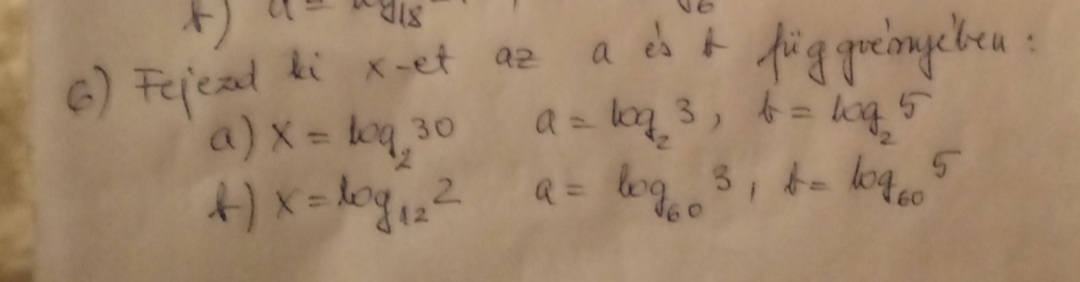 b) a = log₁₈
6) Fejezd ki x-et az a és b függvényében:
a) x = log₂30 a = log₂3, b = log₂5
b) x = log₁₂2 a = log₆₀3, b = log₆₀5